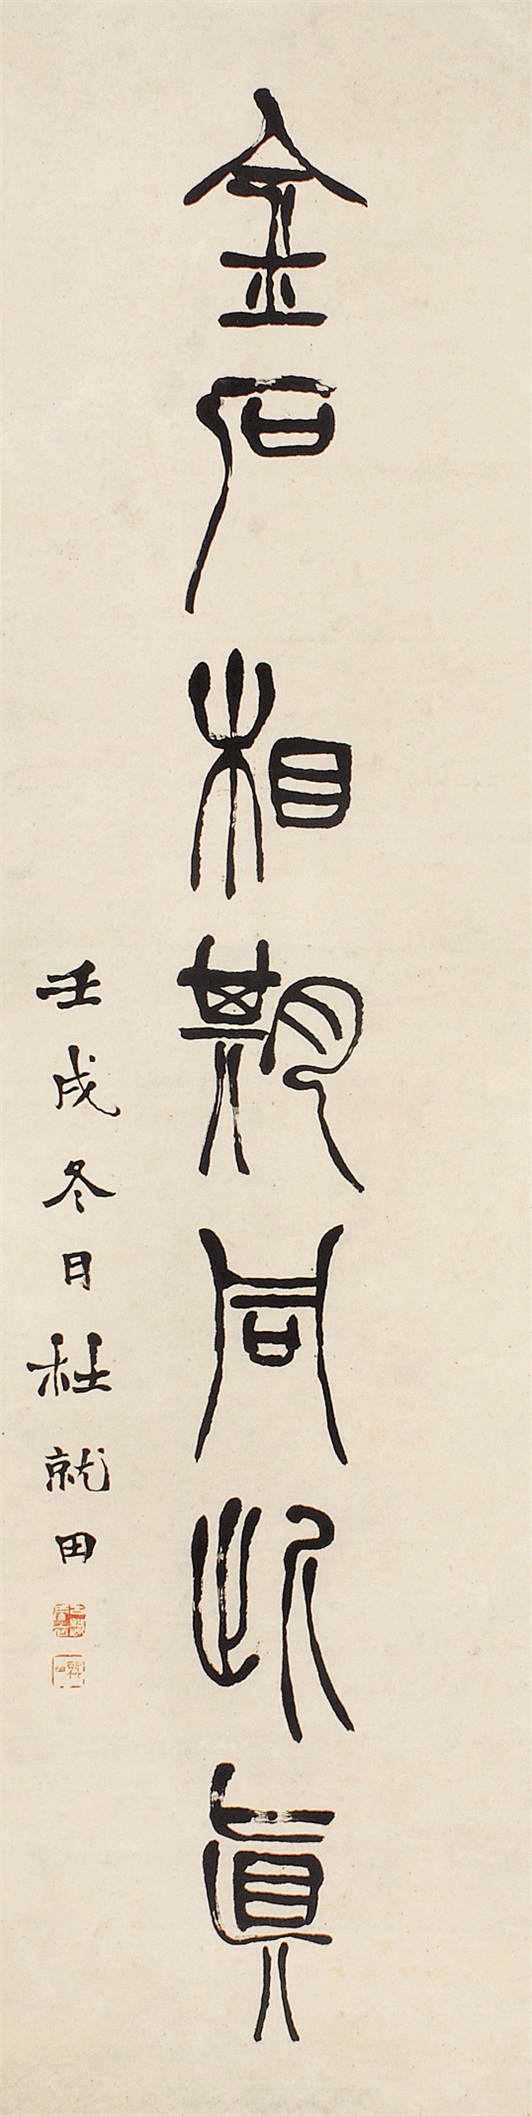 金石相期同此真
壬戌冬日杜就田